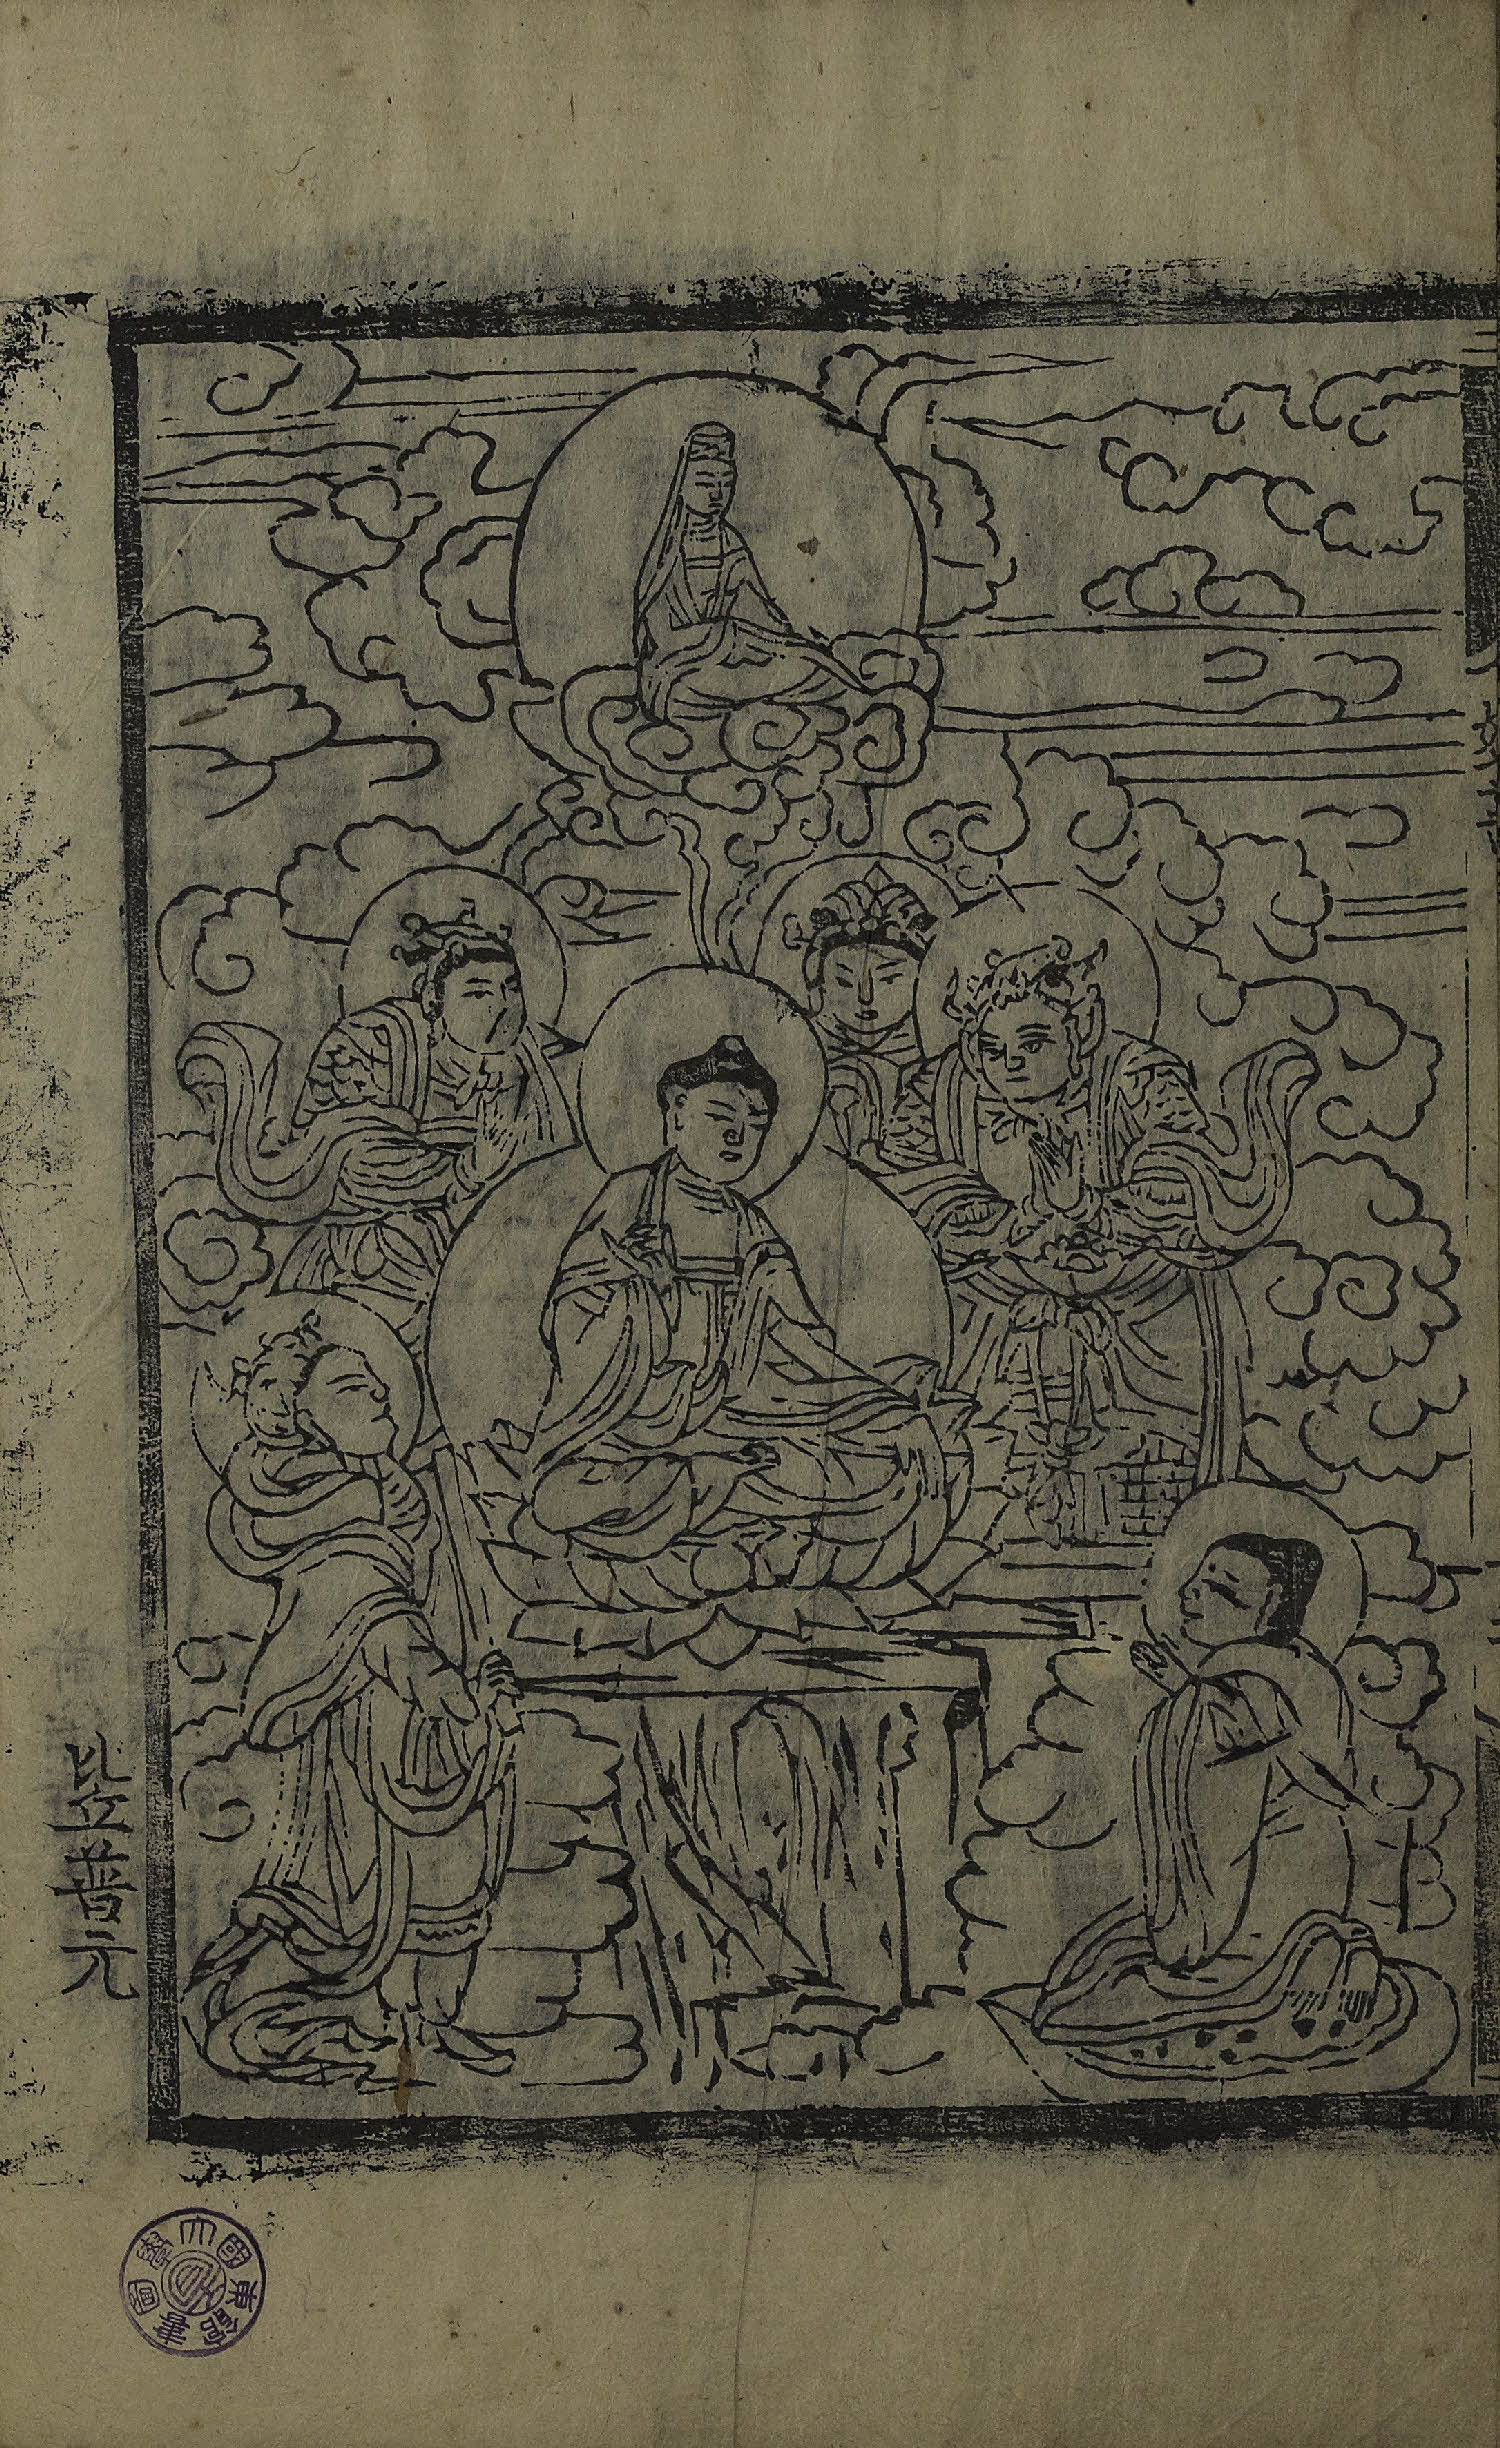 比丘普元
東國大學圖書館